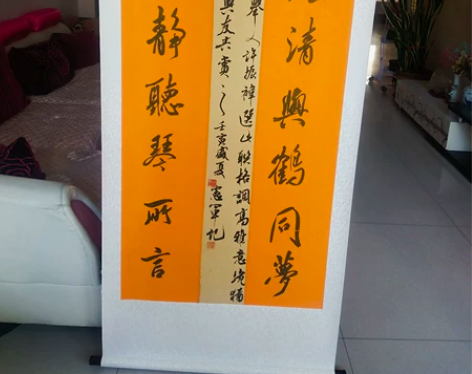 清與鶴同夢
舉人許振禕選此聯格調高雅意境獨
與友共賞之壬寅盛夏憲軍記
靜聽琴所言